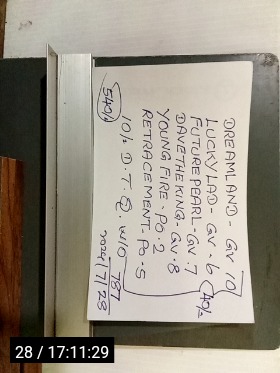 DREAMLAND - GV 10
LUCKYLAD - GV - 6
FUTUREPEARL - GV. 7
DAVETHEKING - GV. 8
YOUNG FIRE - PO. 2
RETRACEMENT - PO. 5
40/-
540/-
10/- D. T. Q. W10
787
7128
28 / 17:11:29